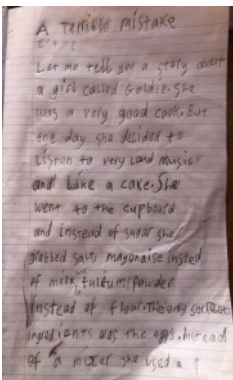 A Terrible mistake
Let me tell you a story about
a girl called Goldie. She
was a very good cook. But
one day she decided to
listen to very loud music
and bake a cake. She
went to the cupboard
and instead of sugar she
grabbed salt, mayonaise insted
of milk, powder
instead of flour. The only
was the eggs. Instead
of a mixer she used a